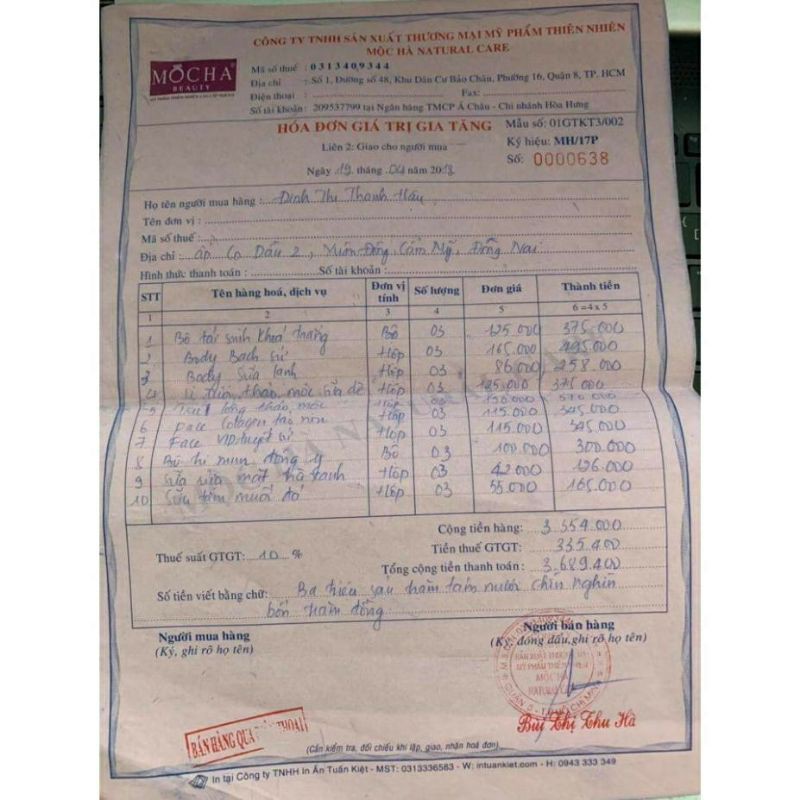 CÔNG TY TNHH SẢN XUẤT THƯƠNG MẠI MỸ PHẨM THIÊN NHIÊN
MỘC HÀ NATURAL CARE
MOCHA
BEAUTY
Mã số thuế : 0313409344
Địa chỉ : Số 1, Đường số 48, Khu Dân Cư Bảo Chân, Phường 16, Quận 8, TP. HCM
Điện thoại : Fax:
Số tài khoản: 209537799 tại Ngân hàng TMCP Á Châu - Chi nhánh Hòa Hưng
HÓA ĐƠN GIÁ TRỊ GIA TĂNG
Mẫu số: 01GTKT3/002
Liên 2: Giao cho người mua
Ký hiệu: MH/17P
Ngày 19 tháng 04 năm 2018
Số: 0000638
Họ tên người mua hàng : Đinh Thị Thanh Hậu
Tên đơn vị :
Mã số thuế :
Địa chỉ : ấp Cọ Dầu 2, Xuân Đông, Cẩm Mỹ, Đồng Nai
Hình thức thanh toán : Số tài khoản :
STT Tên hàng hoá, dịch vụ Đơn vị tính Số lượng Đơn giá Thành tiền
1 2 3 4 5 6 =4 x 5
1 Bộ tái sinh khoá trắng Bộ 03 125.000 375.000
2 Body Bạch sứ Hộp 03 165.000 495.000
3 Body Sữa lạnh Hộp 03 86.000 258.000
4 thảo mộc sữa dê Hộp 03 125.000 375.000
5 lông thảo mộc Hộp 03 190.000 570.000
6 Face Collagen tảo non Hộp 03 115.000 345.000
7 Face VIP tuyết sứ Hộp 03 115.000 345.000
8 Bộ trị mụn đông y Bộ 03 100.000 300.000
9 Sữa rửa mặt trà xanh Hộp 03 42.000 126.000
10 Sữa tắm muối đỏ Hộp 03 55.000 165.000
Cộng tiền hàng: 3.354.000
Thuế suất GTGT: 10 % Tiền thuế GTGT: 335.400
Tổng cộng tiền thanh toán : 3.689.400
Số tiền viết bằng chữ: Ba triệu sáu trăm tám mươi chín nghìn
bốn trăm đồng
Người mua hàng
Người bán hàng
(Ký, ghi rõ họ tên)
(Ký, đóng dấu, ghi rõ họ tên)
MỘC HÀ
NATURAL
Bùi Thị Thu Hà
BÁN HÀNG QUA THOẠI
(Cần kiểm tra, đối chiếu khi lập, giao, nhận hoá đơn)
In tại Công ty TNHH In Ấn Tuấn Kiệt - MST: 0313336583 - W: intuankiet.com - H: 0943 333 349